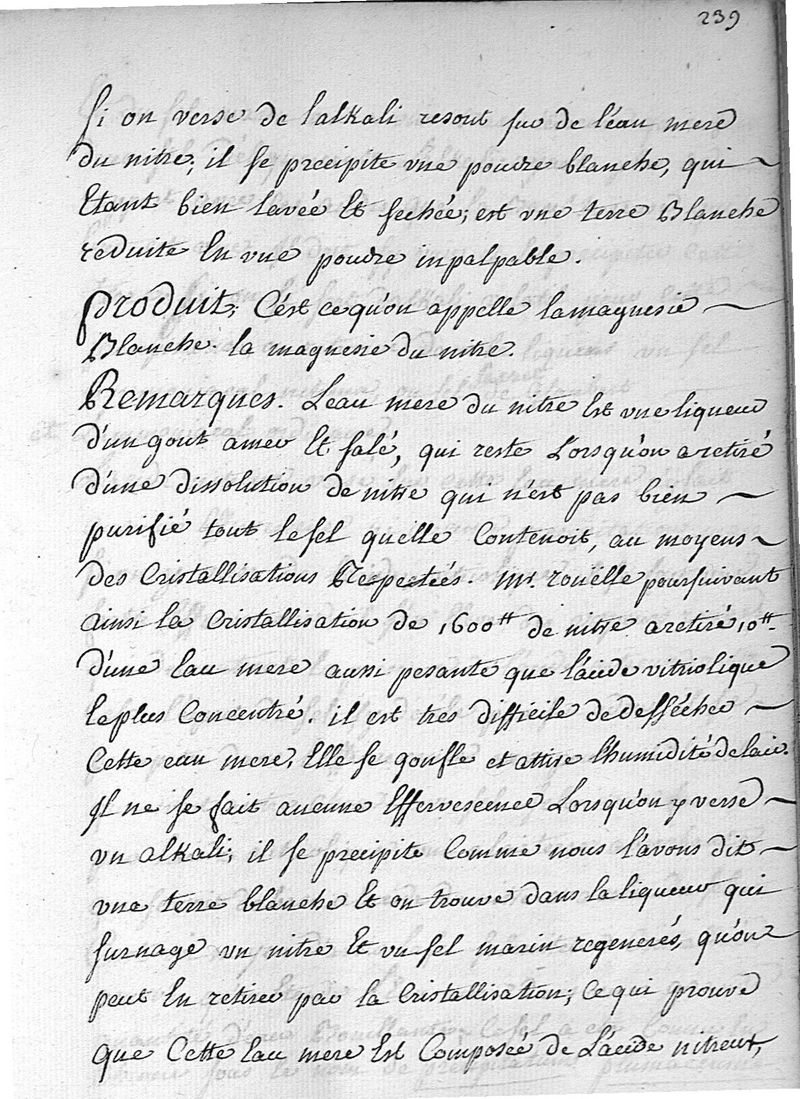 239
Si on verse de lalkali resout sur de l'éau mere
du nitre, il se precipite vne poudre blanche, qui
Etant bien lavée Et sechée, est vne terre Blanche
reduite En vne poudre inpalpable.
Produit, C'est ce qu'on appelle la magnesie
Blanche. la magnesie du nitre.
Remarques. L'eau mere du nitre Est vne liqueur
d'un gout amer Et salé, qui reste Lorsqu'on a retiré
d'une dissolution de nitre qui n'est pas bien
purifié tout le sel quelle Contenoit, au moyens
des Cristallisations Respectées. Mr. rouëlle poursuivant
ainsi la Cristallisation de 1600tt de nitre a retiré 10tt
d'une Eau mere aussi pesante que l'acide vitriolique
le plus Concentré. il est tres difficile de desséchée
Cette eau mere, Elle se gonfle et attire l'humidité de l'air.
Il ne se fait aucune Effervescence Lorsqu'on y verse
vn alkali; il se precipite Comme nous l'avons dit
vne terre blanche Et on trouve dans la liqueur qui
surnage vn nitre Et vn sel marin regenerés, qu'on
peut En retirer par la Cristallisation; Ce qui prouve
que Cette Eau mere Est Composée de L'acide nitreux,